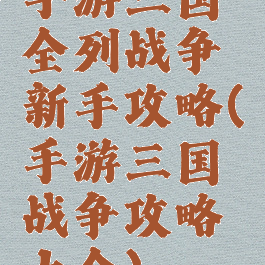 手游三国
全列战争
新手攻略(
手游三国
战争攻略
大全)